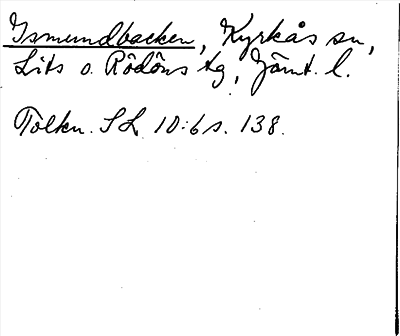 Ismundbacken, Kyrkås sn,
Lits o. Rödöns tg, Jämt. l.
Tolkn. SL 10:6 s. 138.